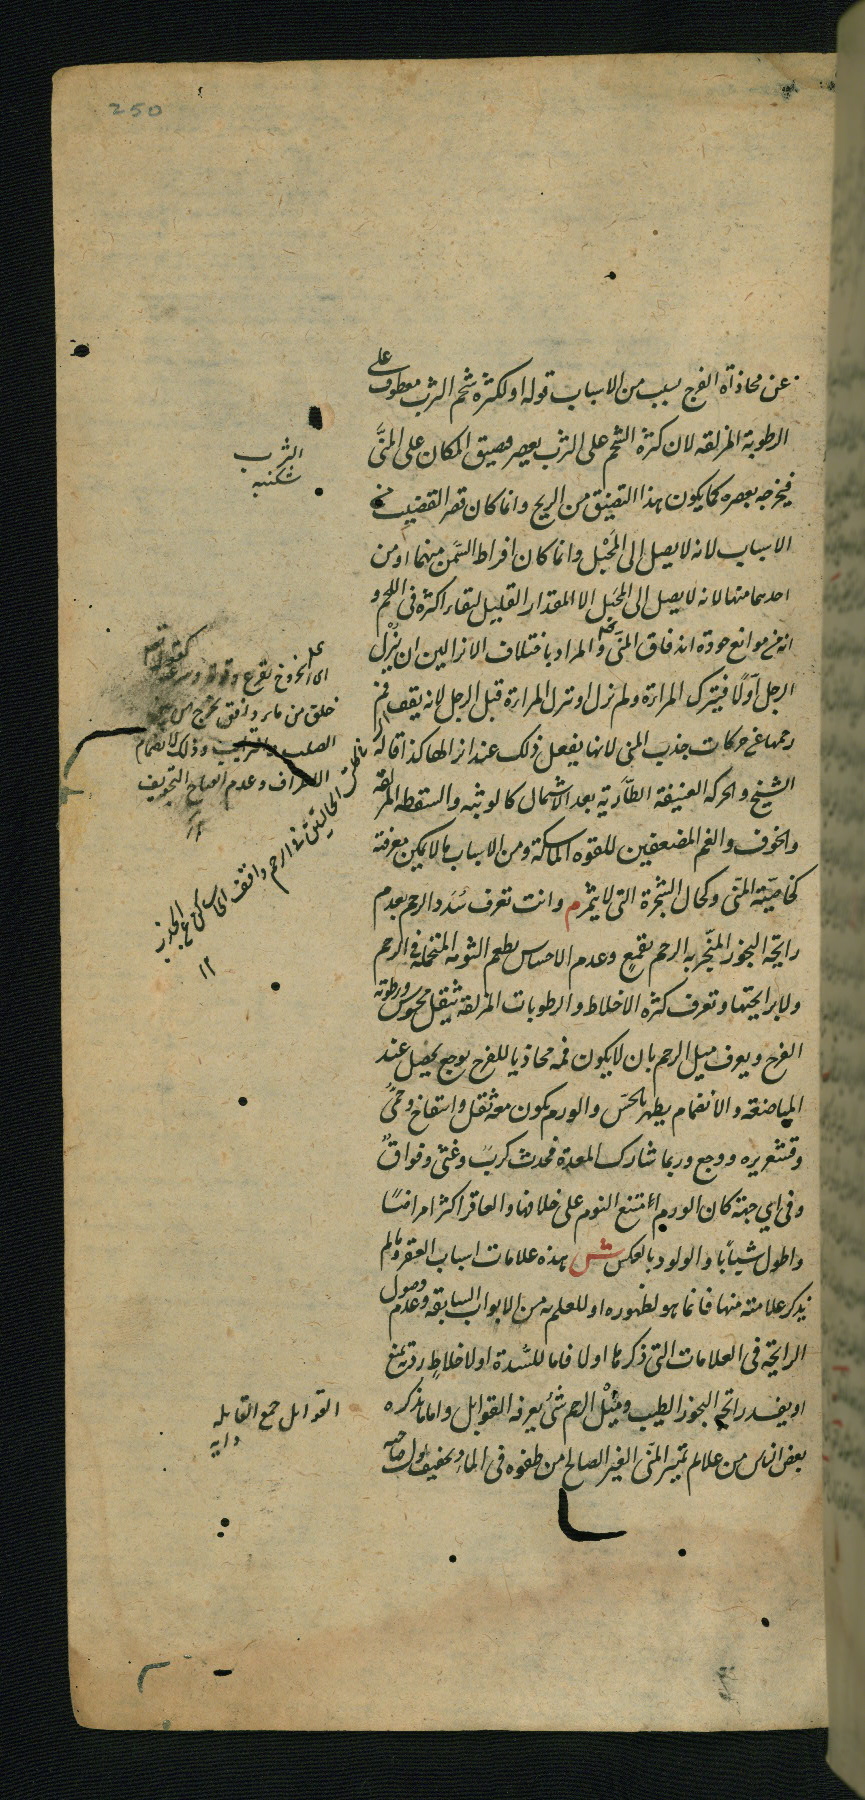 250
عن محاذاة الفرج بسبب من الاسباب قوله او لكثرة شحم الثرب معطوف على
الرطوبة المزلقه لان كثرة الشحم على الثرب يعصر ويضيق المكان على المنّى
فيخرجه بعصره كما يكون هذا التضيق من الريح وانما كان قصر القضيب من
الاسباب لانه لا يصل الى المَحْبل وانما كان افراط السّمن منهما او من
احدهما منها لانه لا يصل الى المحبل الا المقدار القليل لبقاء اكثره فى اللحم و
انه من موانع جودة اندفاق المنّى والمراد باختلاف الانزالين ان ينْزل
الرجل اوّلا فيترك المراة ولم تنزل او تنزل المراة قبل الرجل لانه يقف فم
رحمها عن حركات جذب المنى لانها يفعل ذلك عند انزالها كذا قاله
الشيخ والحركه العنيفة الطاّرية بعد الاشتمال كالوثبه والسقطه المزلقه
والخوف والغم المضعفين للقوه الماسكة ومن الاسباب ما لا يمكن معرفته
كخاصّيته المنّى وكحال الشجرة التى لا يثمر م وانت تعرف سُدَد الرحم بعدم
رايحة البخور المتبخر به الرحم بقمع وعدم الاحساس بطعم الثومه المتحملة فى الرحم
ولا برايحتها وتعرف كثره الاخلاط والرطوبات المزلقه بثقل محسوس ورطوبه
الفرج ويعرف ميل الرحم بان لا يكون فمه محاذيا للفرج بوجع يحصل عند
المباضعة والانضمام يظهر بالحسّ والورم يكون معه ثقل وانتفاخ وحمّى
وقشعريره ووجع وربما شارك المعدة فحدث كربٌ وغثى وفواقٌ
وفى اي جهة كان الورم امتنع النوم على خلافها والعاقر اكثر امراضًا
واطول شبابًا والولود بالعكس ش هذه علامات اسباب العقر وما لم
يذكر علامته منها فانما هو لظهوره او للعلم به من الابواب السابقه وعدم وصول
الرايحة فى العلامات التى ذكر ما اولا فاما للسدة او لاخلاطٍ رديّة يمنع
او يفسد رائحة البخور الطيب وميْل الرحم شئ يعرفه القوابل واما ما ذكره
بعض الناس من علامـ تميز المنّى الغير الصالح من طفوه فى الماء وتجفيف بول صاحبه
الثرب
شكنبه
خلق من ماء دافق يخرج من بين
الصلب والترايب وذلك لانضمام
الاطراف وعدم اتساع التجويف
١٢
القوابل جمع القابله
دايه